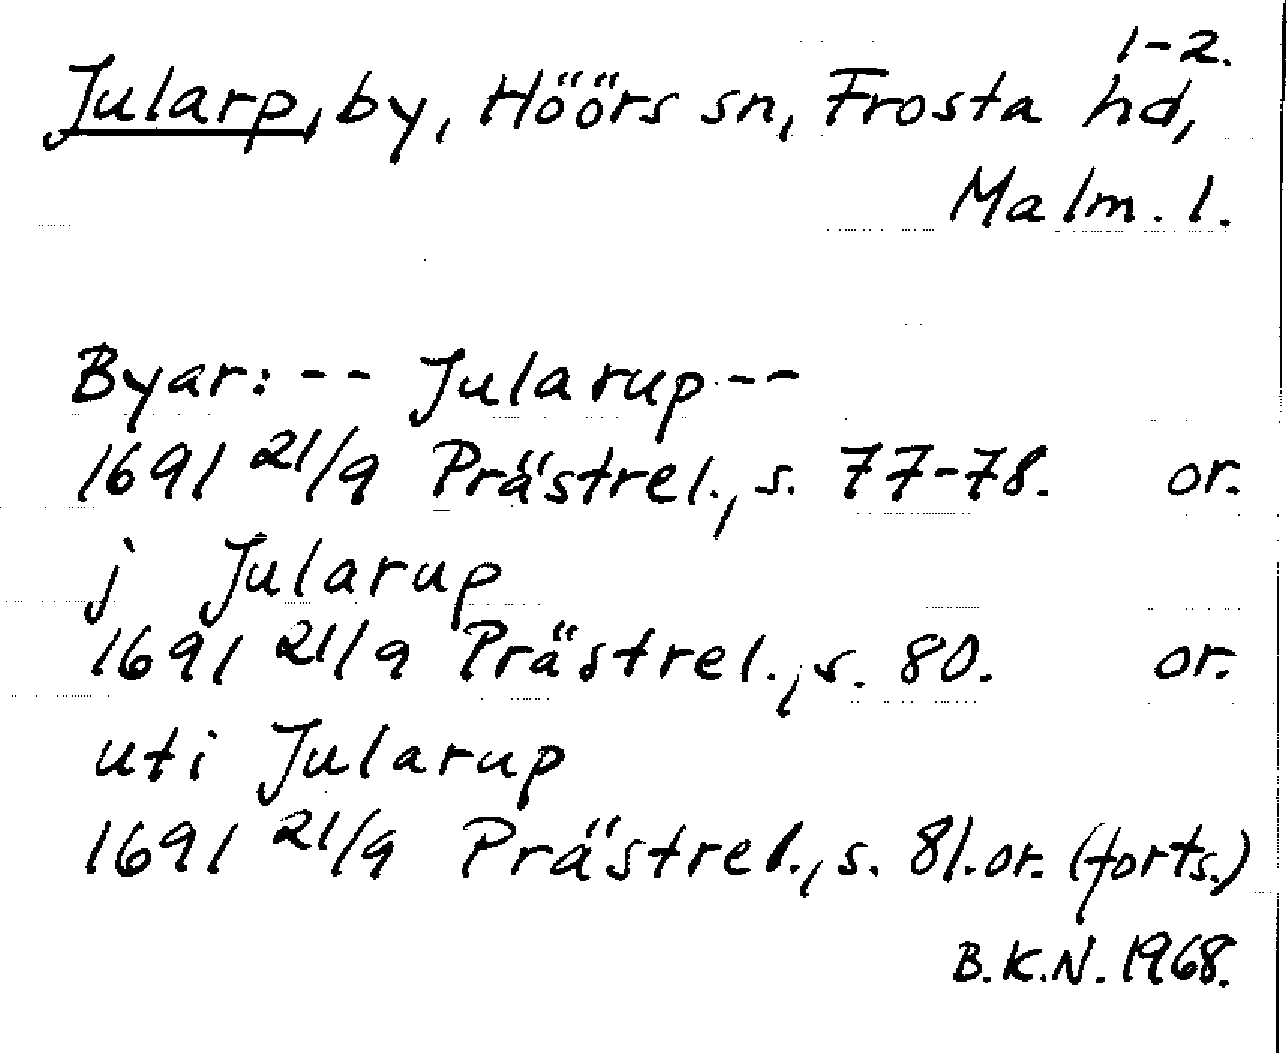 1-2.
Jularp, by, Höörs sn, Frosta hd,
Malm. l.
Byar: -- Jularup --
1691 21/9 Prästrel., s. 77-78. or.
j Jularup
1691 21/9 Prästrel., s. 80. or.
uti Jularup
1691 21/9 Prästrel., s. 81. or. (forts.)
B.K.N. 1968.